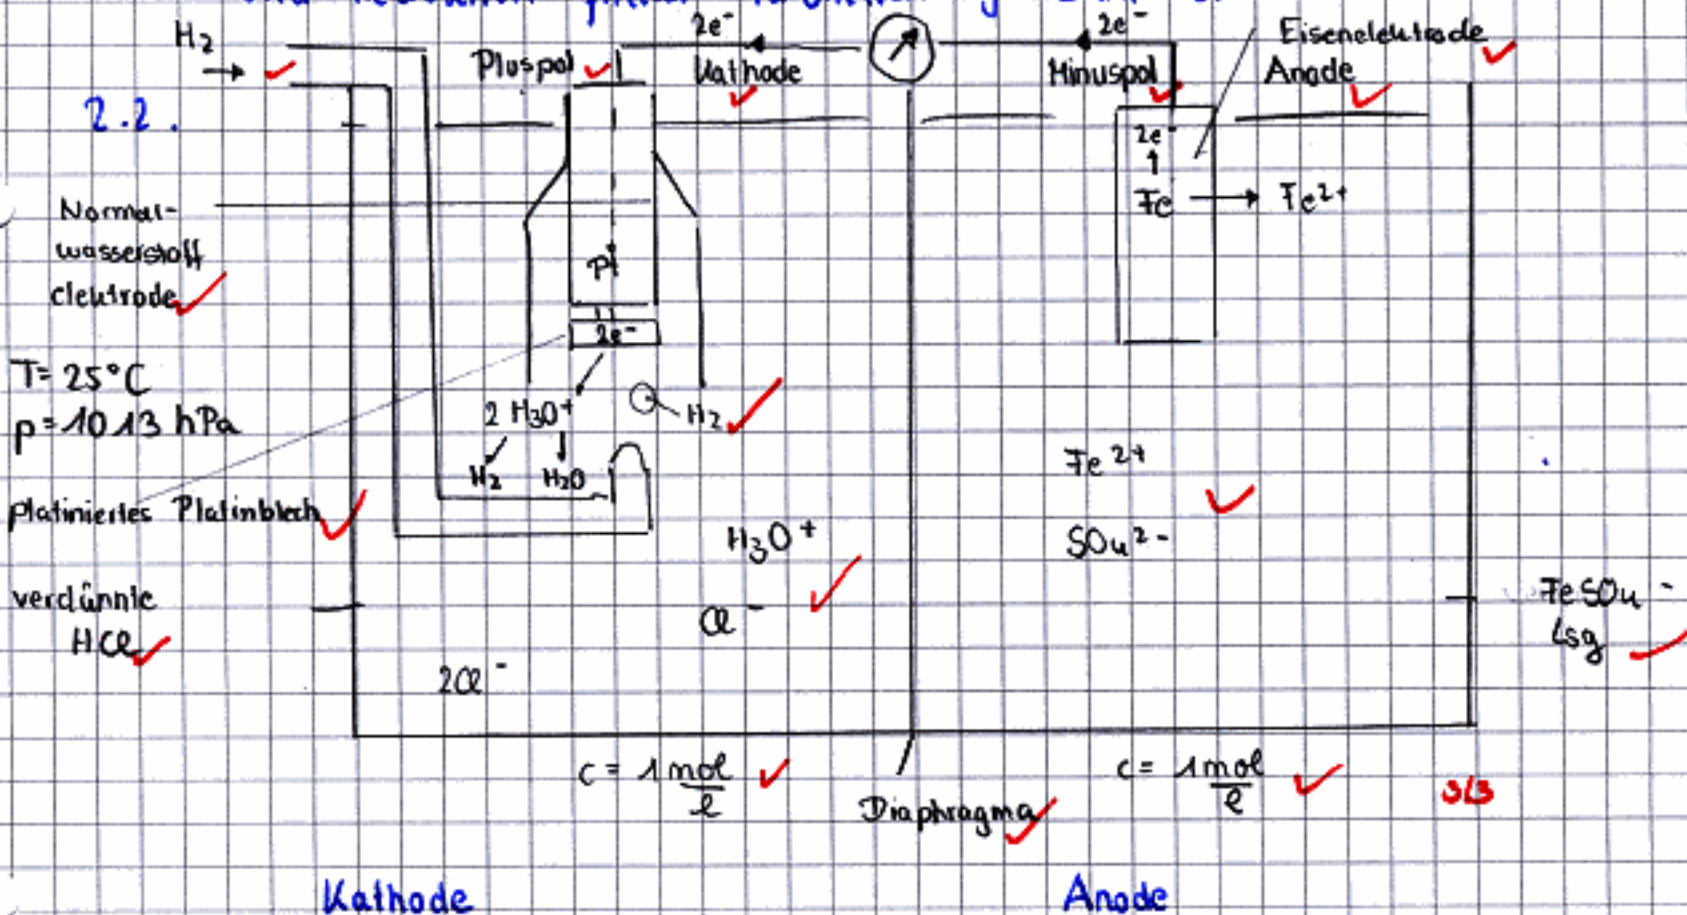 H₂
→
Pluspol
2e⁻
Kathode
2e⁻
Minuspol
Eisenelektrode
Anode
2.2.
2e⁻
↑
Fe → Fe²⁺
Normal-
wasserstoff
elektrode
Pt
2e⁻
T= 25°C
p= 1013 hPa
2 H₃O⁺
H₂
H₂ H₂O
platiniertes Platinblech
H₃O⁺
Cl⁻
2Cl⁻
verdünnte
HCl
Fe²⁺
SO₄²⁻
FeSO₄-
Lsg
c = 1 mol/l
Diaphragma
c = 1 mol/l
3/3
Kathode
Anode